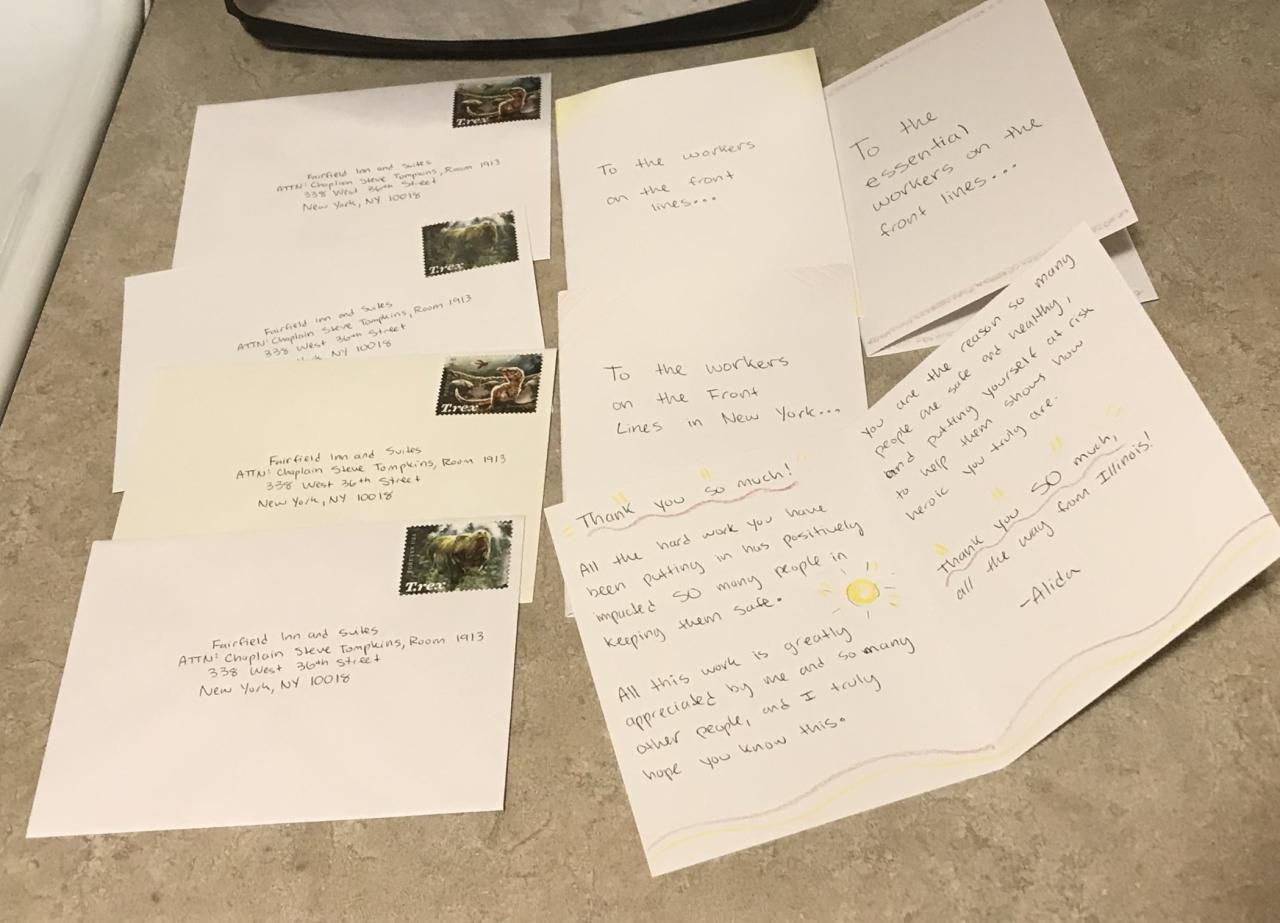 T.rex
Fairfield Inn and Suites
ATTN: Chaplain Steve Tompkins, Room 1913
338 West 36th Street
New York, NY 10018
T.rex
Fairfield Inn and Suites
ATTN: Chaplain Steve Tompkins, Room 1913
338 West 36th Street
NY 10018
T.rex
Fairfield Inn and Suites
ATTN: Chaplain Steve Tompkins, Room 1913
338 West 36th Street
New York, NY 10018
T.rex
Fairfield Inn and Suites
ATTN: Chaplain Steve Tompkins, Room 1913
338 West 36th Street
New York, NY 10018
To the workers
on the front
lines...
To the
essential
workers on the
front lines...
To the workers
on the Front
Lines in New York...
Thank you so much!
All the hard work you have
been putting in has positively
impacted so many people in
keeping them safe.
All this work is greatly
appreciated by me and so many
other people, and I truly
hope you know this.
You are the reason so many
people are safe and healthy,
and putting yourself at risk
to help them shows how
heroic you truly are.
Thank you SO much,
all the way from Illinois!
-Alida